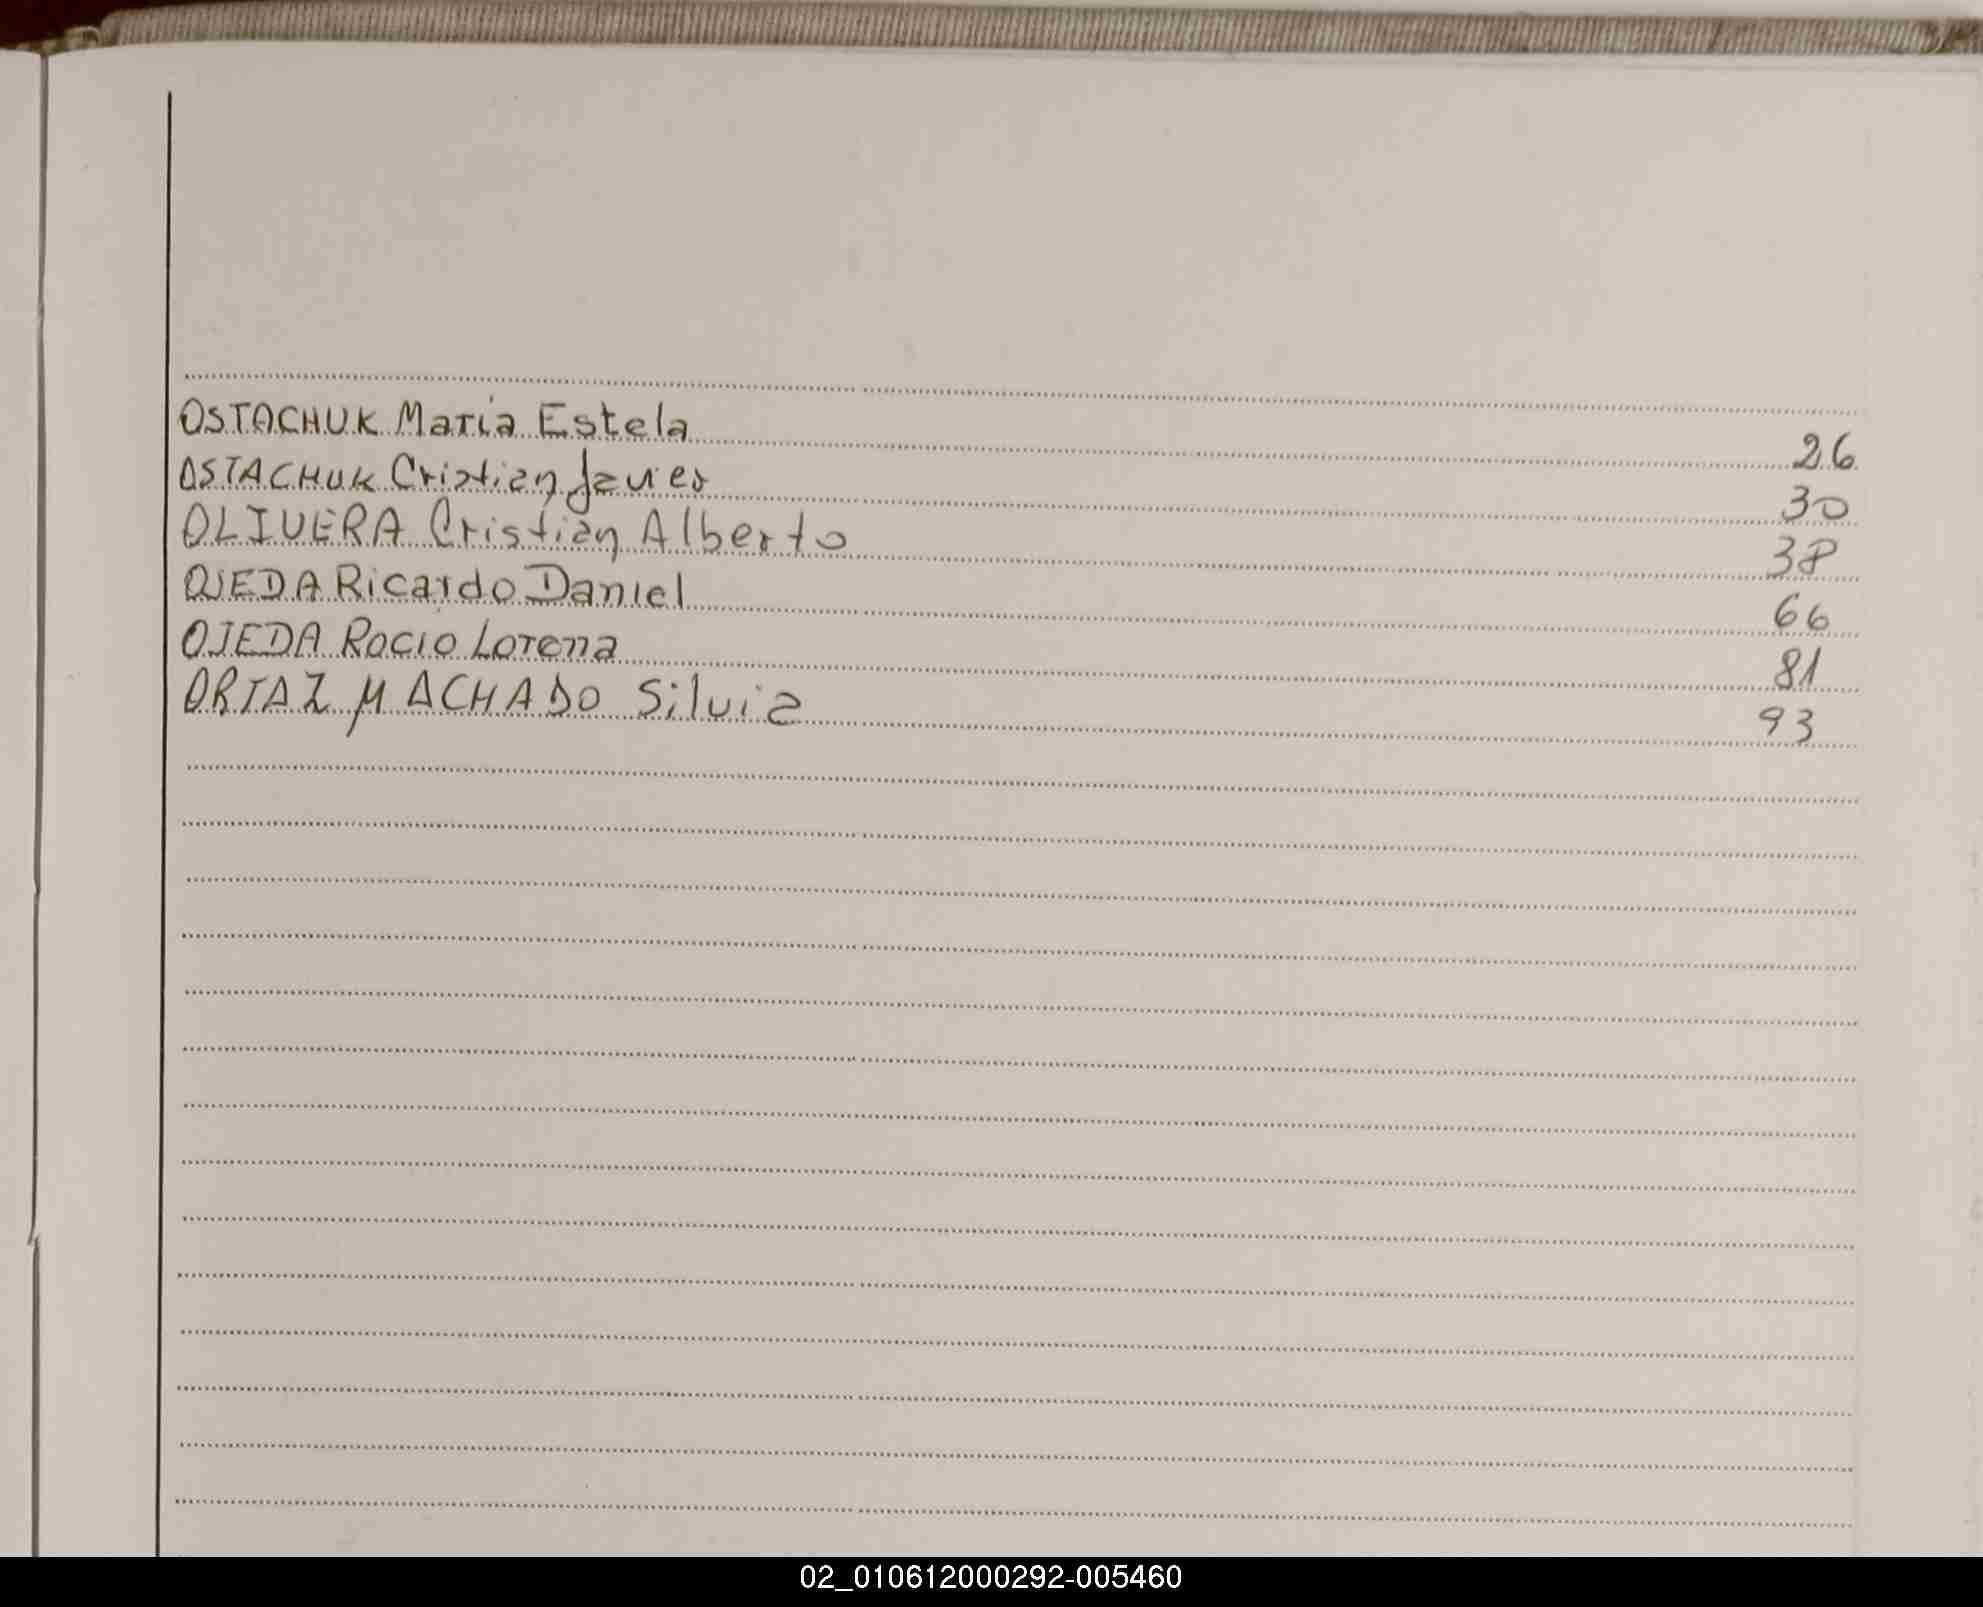 OSTACHUK Maria Estela 26
OSTACHUK Cristian Javier 30
OLIVERA Cristian Alberto 38
OJEDA Ricardo Daniel 66
OJEDA Rocio Lorena 81
ORTAZ MACHADO Silvia 93
02_010612000292-005460